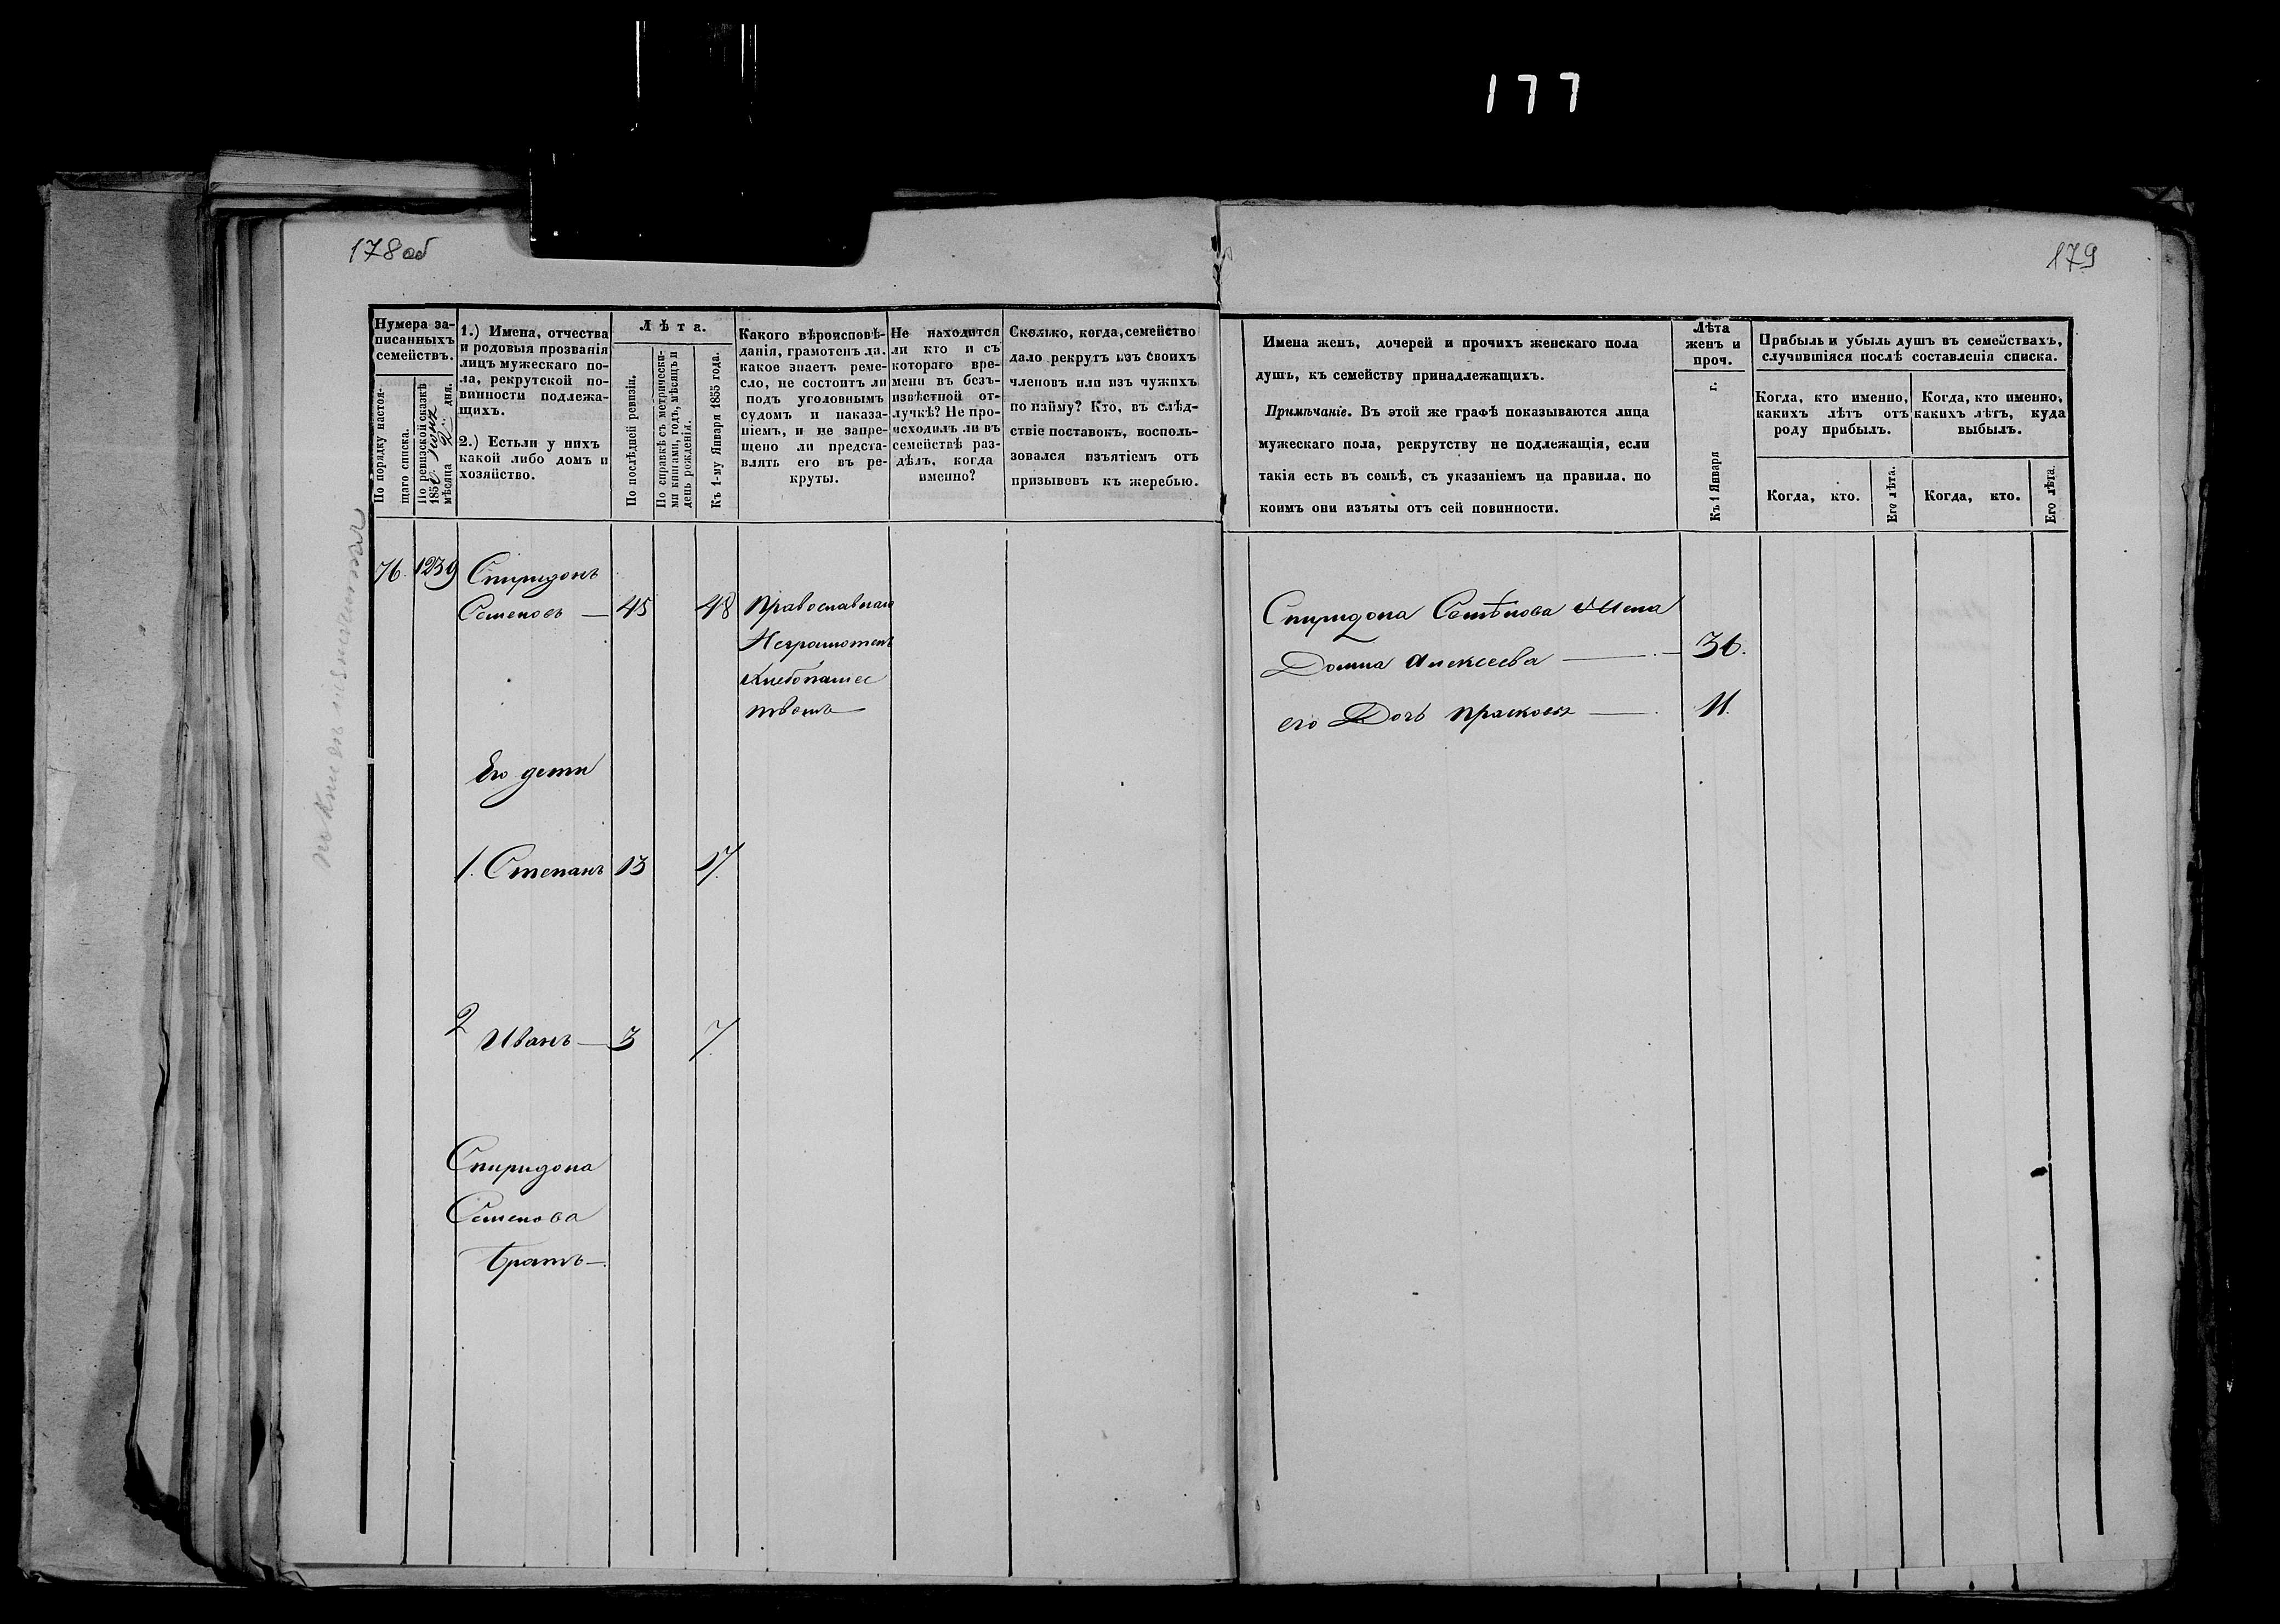 177
178 об
179
Нумера за-
писанныхъ
семействъ.
По порядку настоя-
щаго списка.
По ревизской сказкѣ
185
мѣсяца 2 дня.
1.) Имена, отчества
и родовыя прозванія
лицъ мужескаго по-
ла, рекрутской по-
винности подлежа-
щихъ.
2.) Естьли у нихъ
какой либо домъ и
хозяйство.
Лѣта.
По послѣдней ревизіи.
По справкѣ съ метрически-
ми книгами, годъ, мѣсяцъ и
день рожденія.
Къ 1-му Января 1855 года.
Какого вѣроисповѣ-
данія, грамотенъ ли.
какое знаетъ реме-
сло, не состоитъ ли
подъ уголовнымъ
судомъ и наказа-
ніемъ, и не запре-
щено ли предста-
влять его въ ре-
круты.
Не находится
ли кто и съ
котораго вре-
мени въ безъ-
извѣстной от-
лучкѣ? Не про-
исходилъ ли въ
семействѣ раз-
дѣлъ, когда
именно?
Сколько, когда, семейство
дало рекрутъ изъ своихъ
членовъ или изъ чужихъ
по найму? Кто, въ слѣд-
ствіе поставокъ, восполь-
зовался изъятіемъ отъ
призывовъ къ жеребью.
Имена женъ, дочерей и прочихъ женскаго пола
душъ, къ семейству принадлежащихъ.
Примѣчаніе. Въ этой же графѣ показываются лица
мужескаго пола, рекрутству не подлежащія, если
такія есть въ семьѣ, съ указаніемъ на правила, по
коимъ они изъяты отъ сей повинности.
Лѣта
женъ и
проч.
Къ 1 Января г.
Прибыль и убыль душъ въ семействахъ,
случившіяся послѣ составленія списка.
Когда, кто именно,
какихъ лѣтъ отъ
роду прибылъ.
Когда, кто именно,
какихъ лѣтъ, куда
выбылъ.
Когда, кто.
Его лѣта.
Когда, кто.
Его лѣта.
76. 1239 Спиридонъ
Семеновъ — 45 48 Православнаго
Неграмотенъ
Хлебопашес
твомъ
Его дети
1. Степанъ 13 17.
2 Иванъ — 3 7.
Спиридона
Семенова
братъ —.
Спиридона Семѣнова Жена
Домна Алексеева — 36.
его Дочь Прасковья — 11.